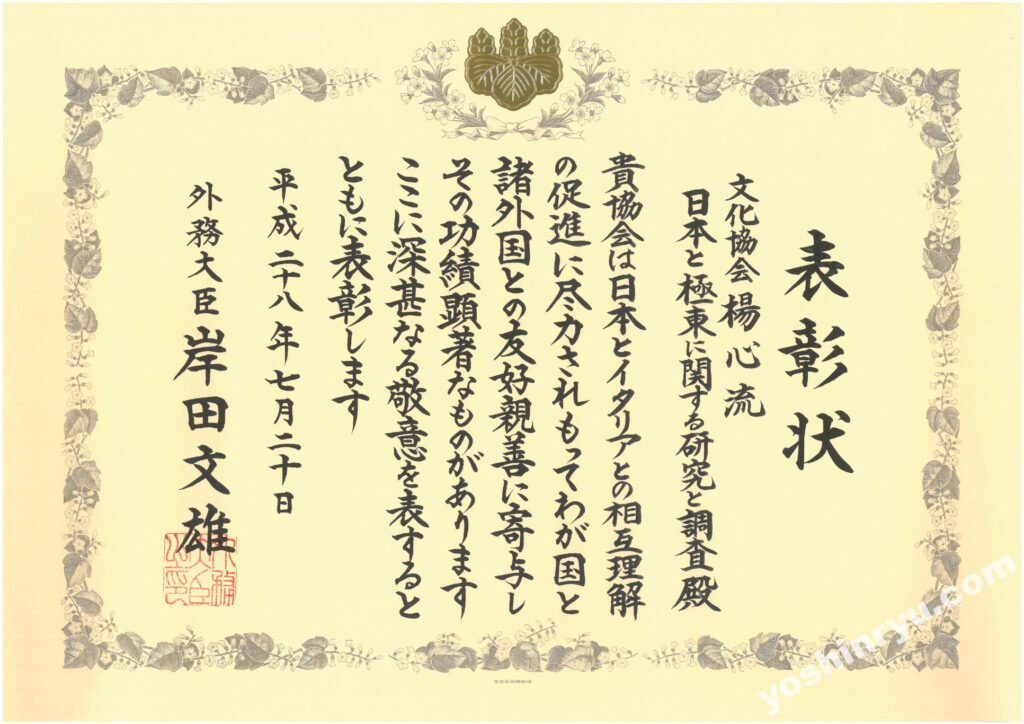 表彰状
文化協会楊心流
日本と極東に関する研究と調査殿
貴協会は日本とイタリアとの相互理解
の促進に尽力されもってわが国と
諸外国との友好親善に寄与し
その功績顕著なものがあります
ここに深甚なる敬意を表すると
ともに表彰します
平成二十八年七月二十日
外務大臣 岸田文雄
yoshinryu.com